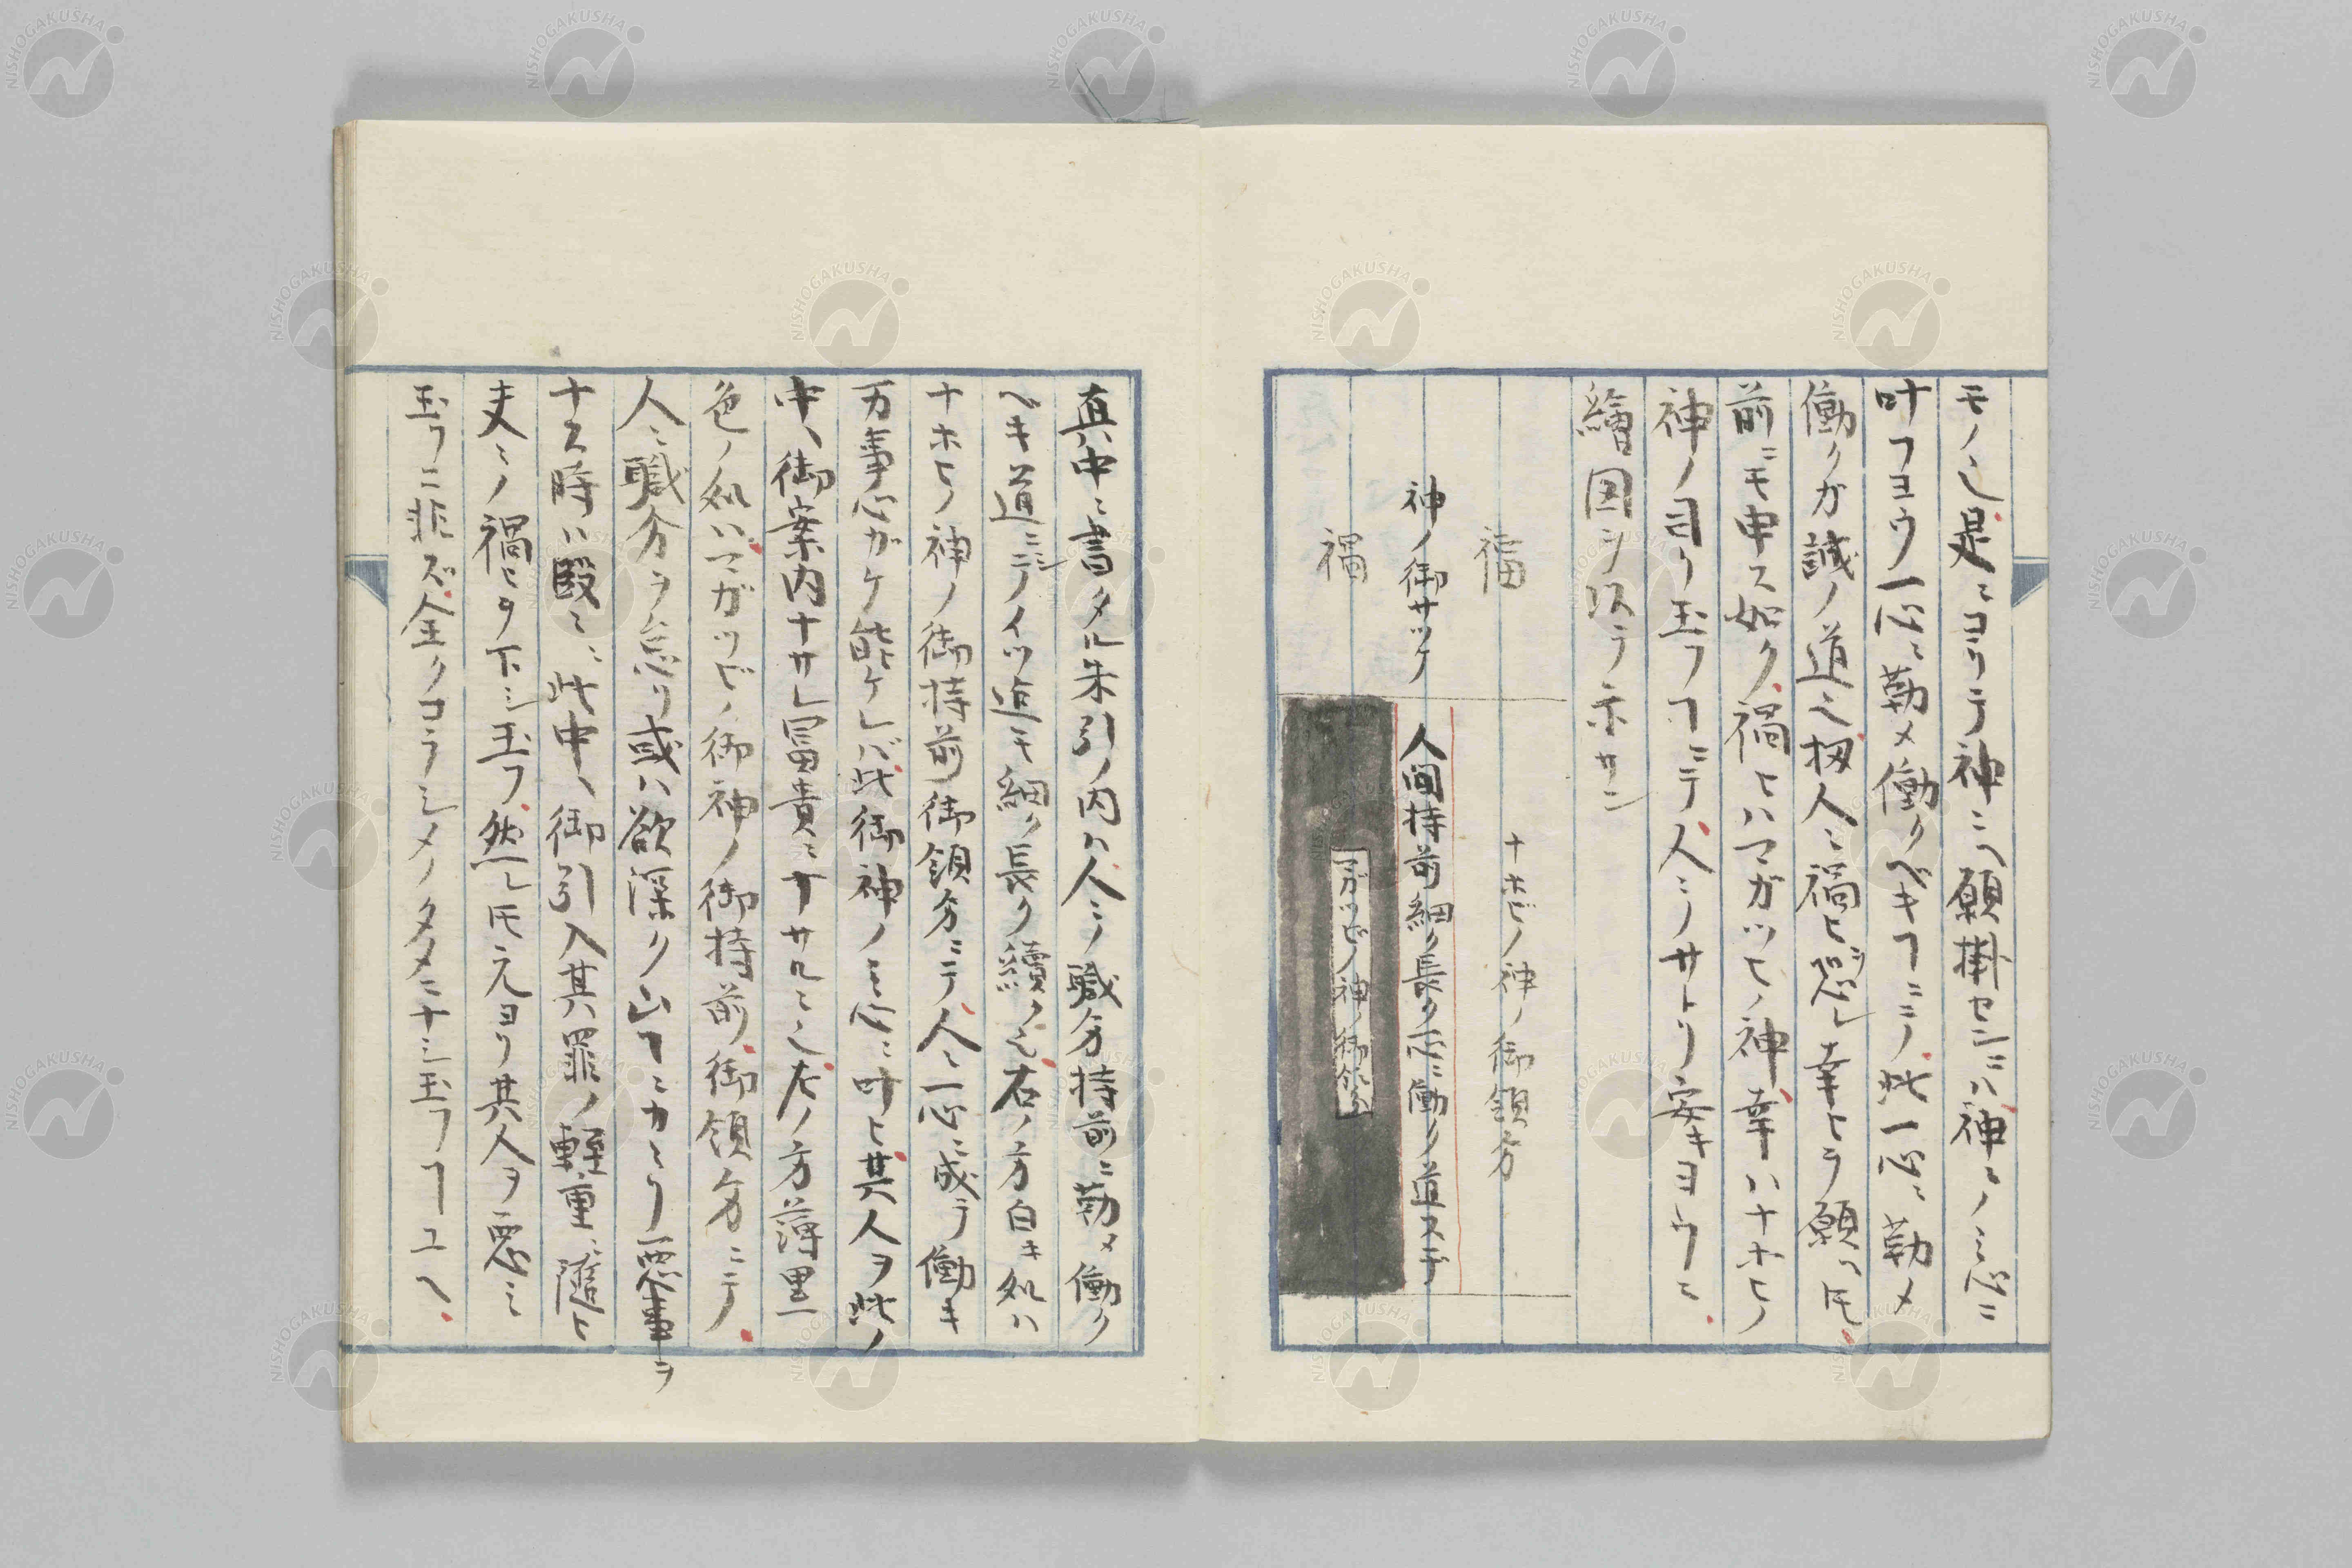 モノ也是ニコリテ神ミヘ願掛センニハ神々ノミ心ニ
叶フヨウ一心ニ勤メ働クベキヿニシテ此一心ニ勤メ
働クガ誠ノ道也扨人ニ禍ヒヲ忌ミ幸ヒヲ願ヘ𪜈
前ニモ申ス如ク禍ヒハマガツヒノ神幸ハナホヒノ
神ノ司リ玉フヿニテ人ミノサトリ安キヨウニ
繪図ヲ以テ示サン
福　ナホビノ神ノ御領分
神ノ御サツケ　人間持前細ク長ク一心ニ働ク道スヂ
禍　マガツビノ神ノ御領分
真中ニ書タル朱引ノ内ハ人ミノ職分持前ニ勤メ働ク
ベキ道ニシテイツ迄モ細ク長ク續ク也右ノ方白キ処ハ
ナホヒノ神ノ御持前御領分ニテ人ニ一心ニ成テ働キ
万事心ガケ能ケレバ此御神ノミ心ニ叶ヒ其人ヲ此ノ
中ヘ御案内ナサレ冨貴ニナサルヽ也左ノ方薄黒
色ノ処ハマガツビノ御神ノ御持前御領分ニテ
人ミ職分ヲ忘リ或ハ欲深ク山ヿニカヽリ悪事ヲ
ナス時ハ段々ニ此中ヘ御引入其罪ノ軽重ニ随ヒ
夫々ノ禍ヒヲ下シ玉フ然レ𪜈元ヨリ其人ヲ悪ミ
玉フニ非ズ全クコラシメノタメニナシ玉フヿユヘ
NISHOGAKUSHA